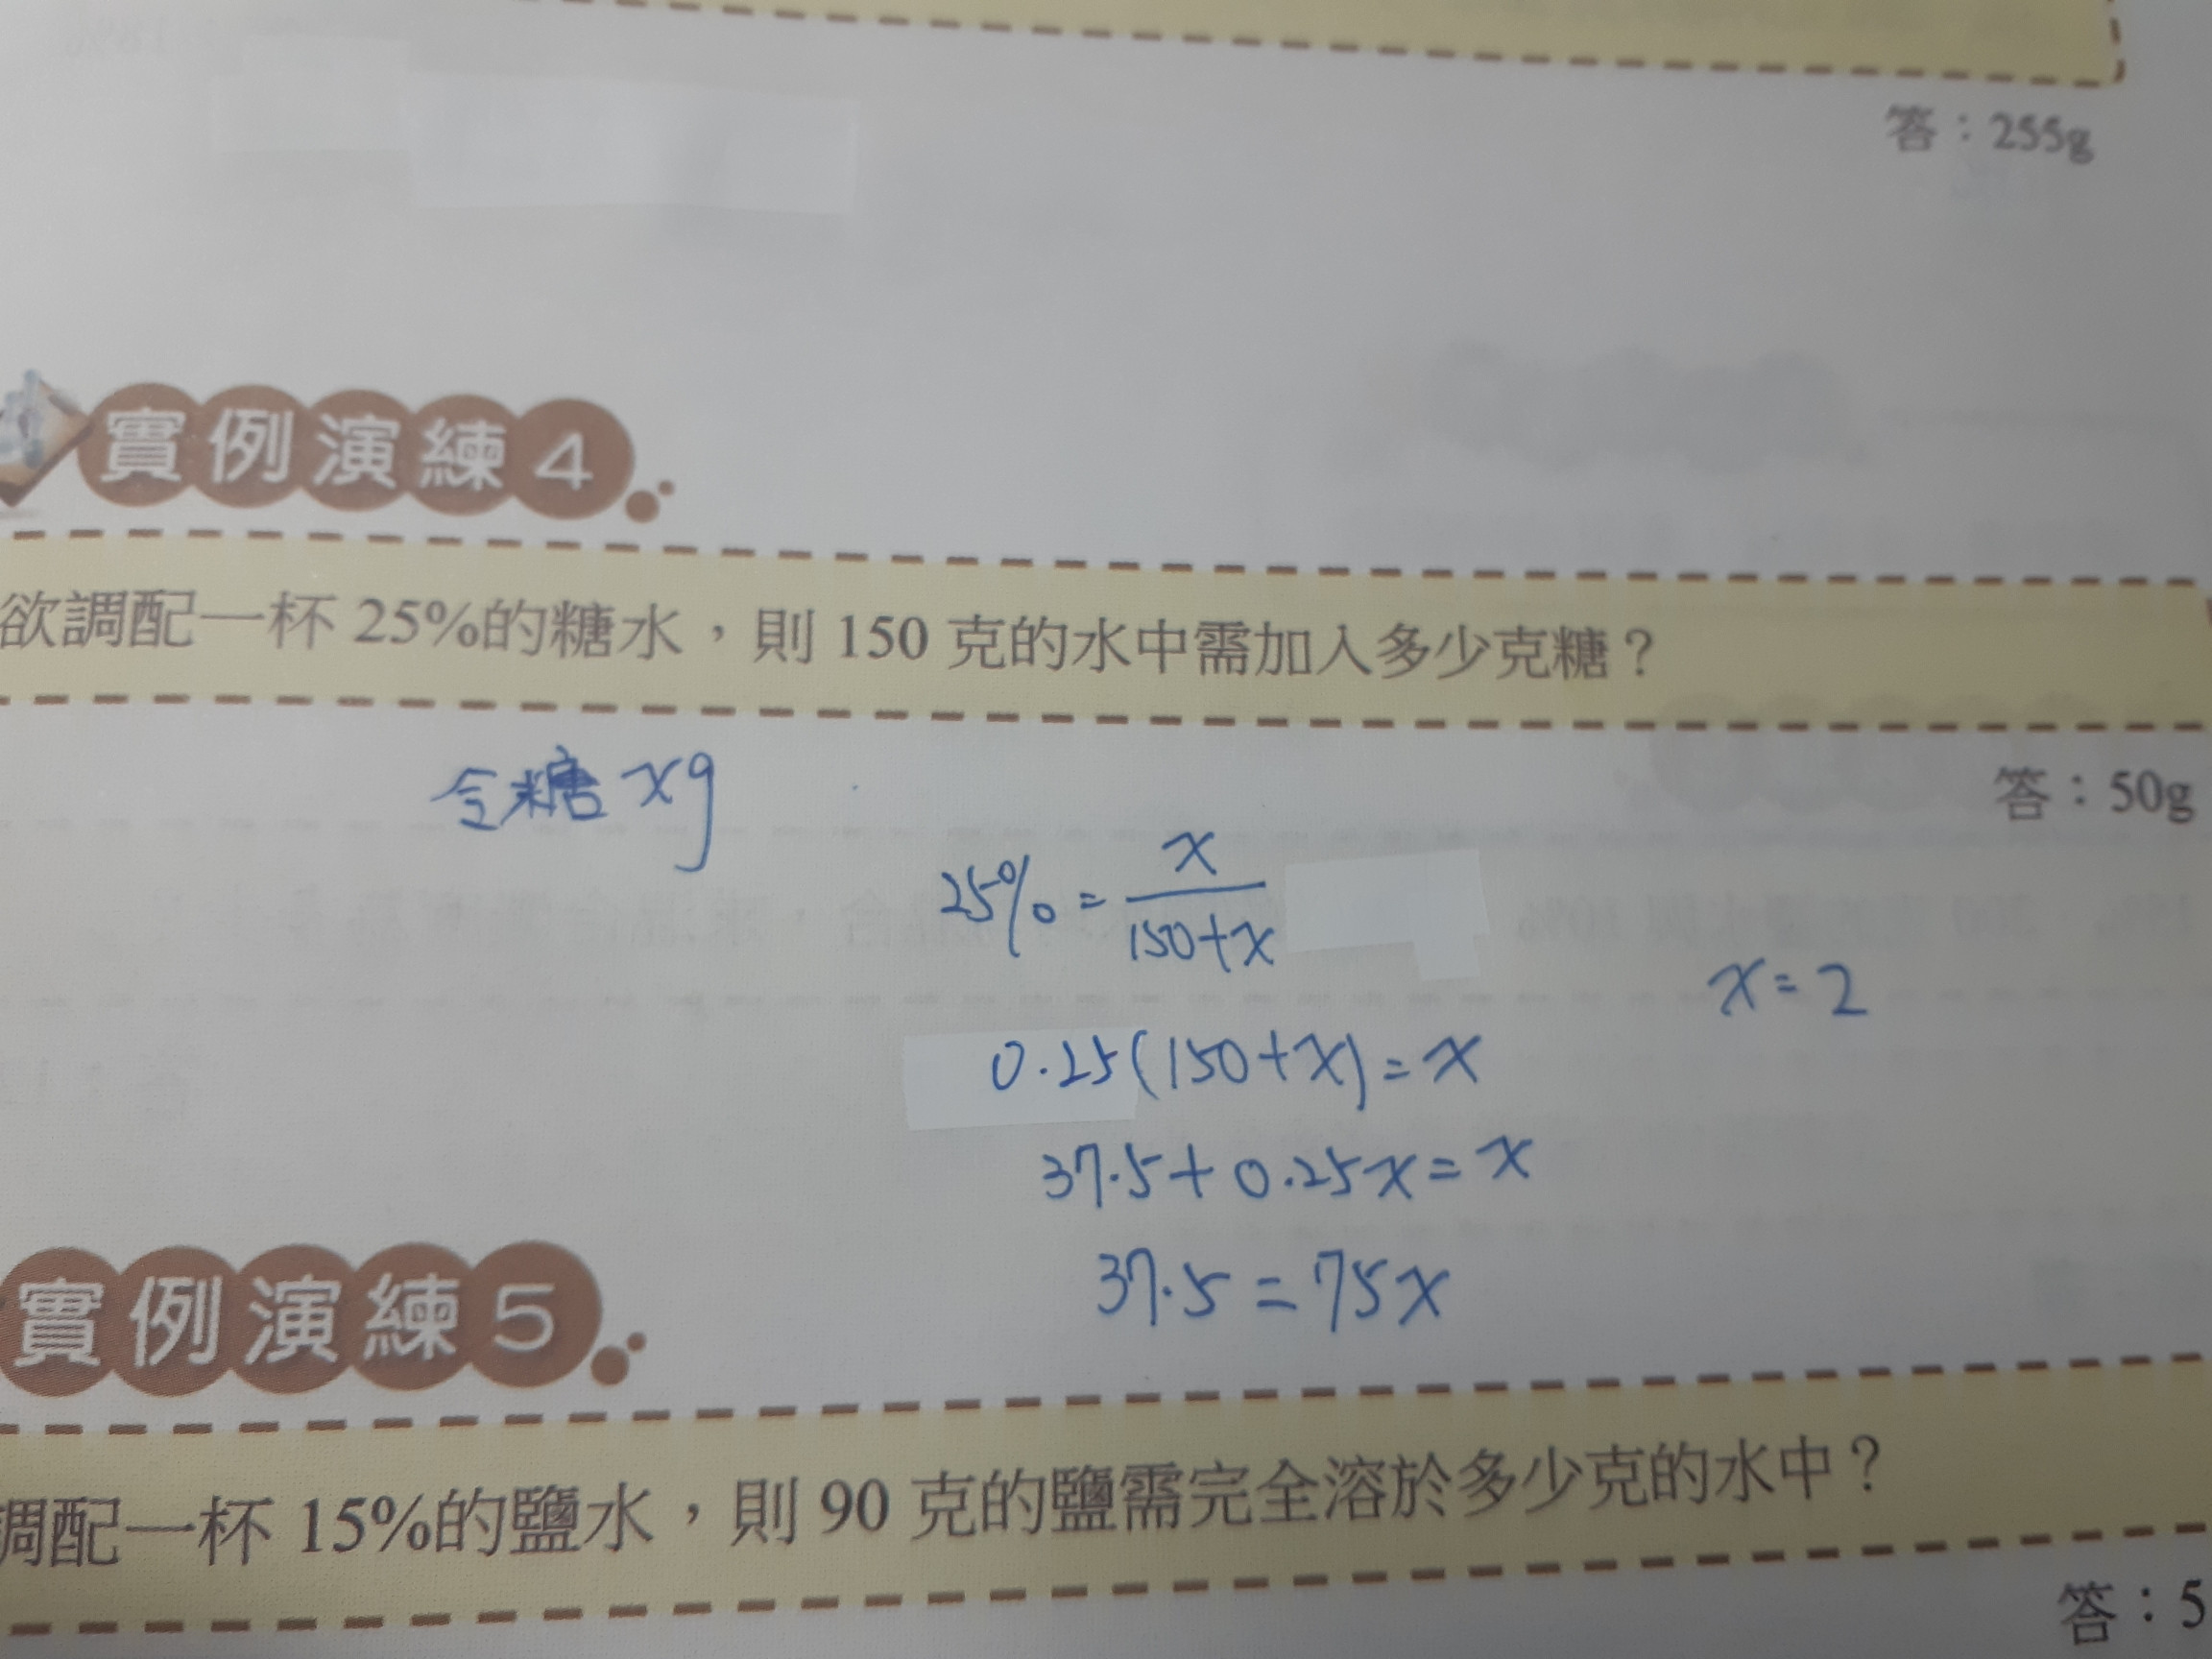 答：255g
實例演練4
欲調配一杯 25%的糖水，則 150 克的水中需加入多少克糖？
答：50g
令糖 xg
25% = x/(150+x)
x = 2
0.25(150+x) = x
37.5 + 0.25x = x
37.5 = 75x
實例演練5
調配一杯 15%的鹽水，則 90 克的鹽需完全溶於多少克的水中？
答：5